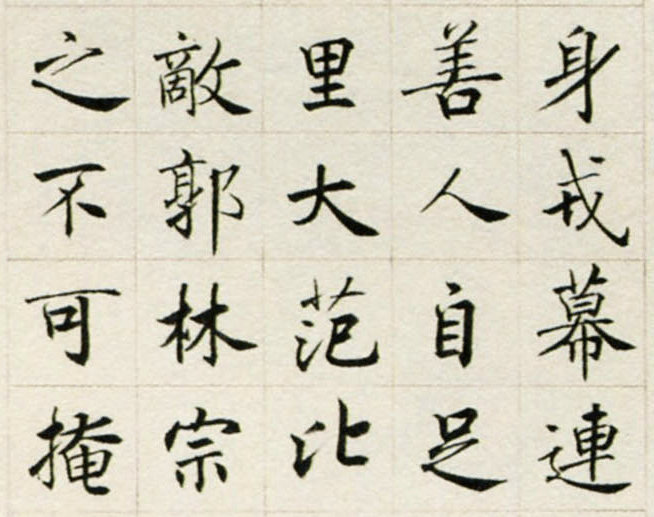 身戎幕連
善人自足
里大范比
敵郭林宗
之不可掩